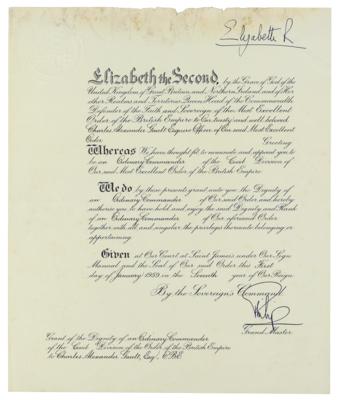 Elizabeth R
Elizabeth the Second, by the Grace of God of the
United Kingdom of Great Britain and Northern Ireland and of Her
other Realms and Territories Queen Head of the Commonwealth
Defender of the Faith and Sovereign of the Most Excellent
Order of the British Empire to Our trusty and well beloved
Charles Alexander Gault Esquire Officer of Our said Most Excellent
Order
Greeting
Whereas We have thought fit to nominate and appoint you to
be an Ordinary Commander of the Civil Division of
Our said Most Excellent Order of the British Empire
We do by these presents grant unto you the Dignity of
an Ordinary Commander of Our said Order and hereby
authorise you to have hold and enjoy the said Dignity and Rank
of an Ordinary Commander of Our aforesaid Order
together with all and singular the privileges thereunto belonging or
appertaining.
Given at Our Court at Saint James's under Our Sign
Manual and the Seal of Our said Order this First
day of January 1959 in the Seventh year of Our Reign.
By the Sovereign's Command.
Philip
Grand Master
Grant of the Dignity of an Ordinary Commander
of the Civil Division of the Order of the British Empire
to Charles Alexander Gault, Esqr, O.B.E.